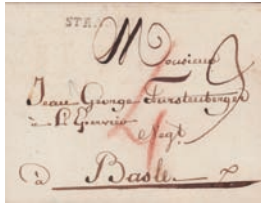 STRA
Monsieur
Jean George Furstenberger
à
Negt
à Basle